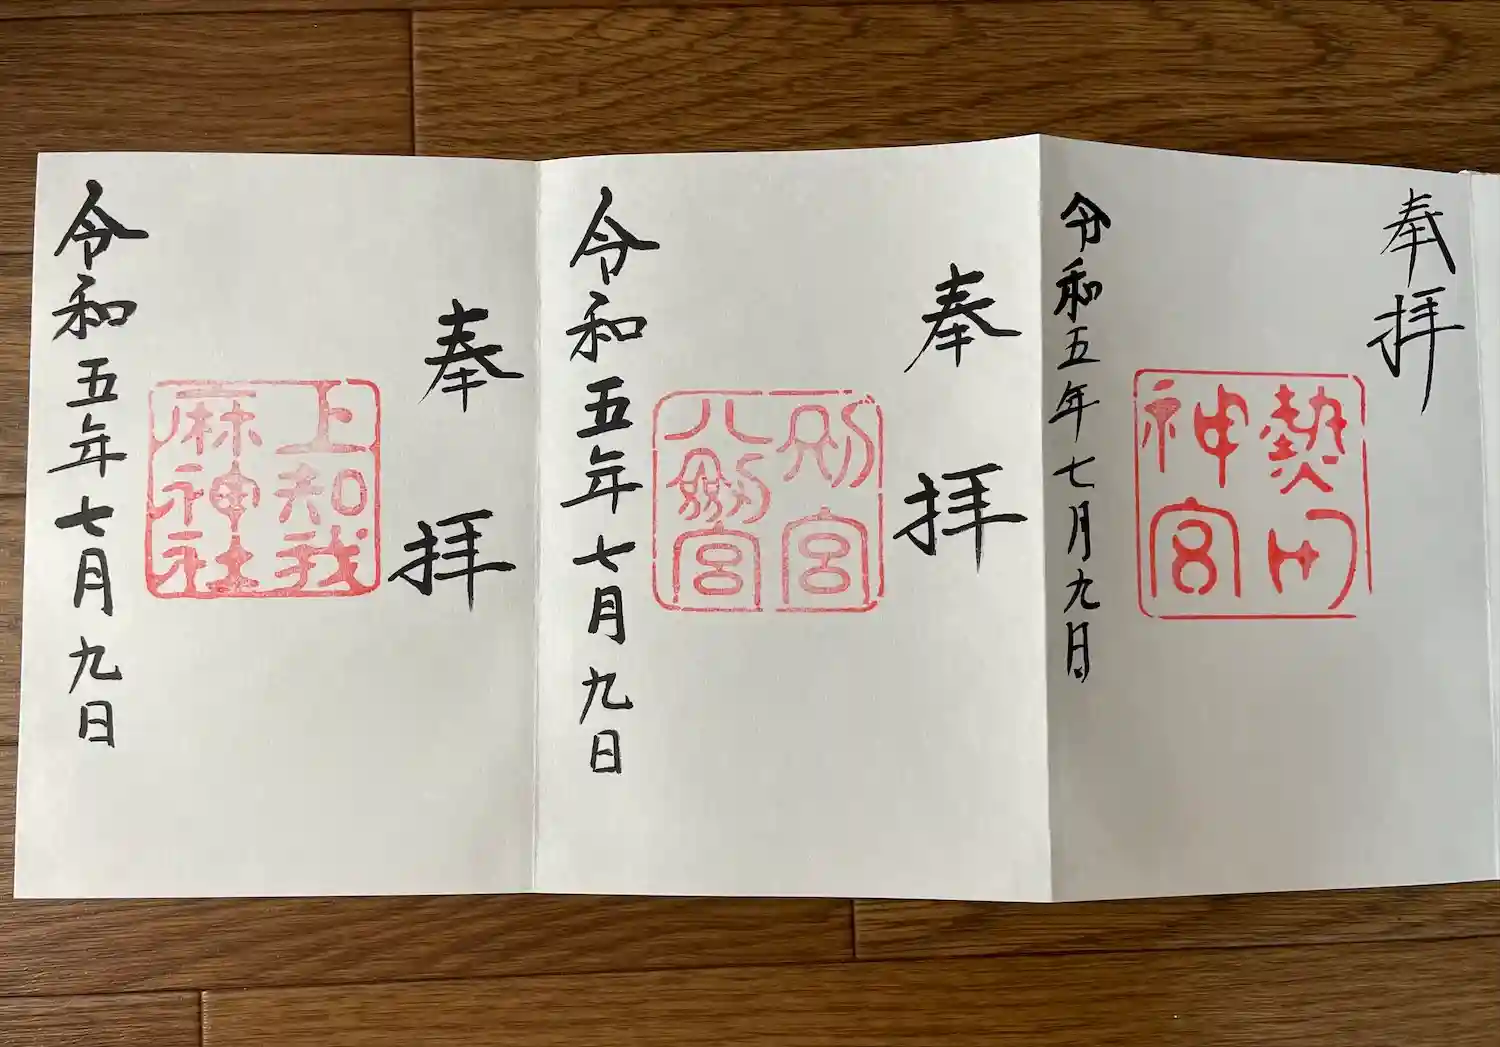 奉拝
熱田
神宮
令和五年七月九日
奉拝
別宮
八剱宮
令和五年七月九日
奉拝
上知我
麻神社
令和五年七月九日